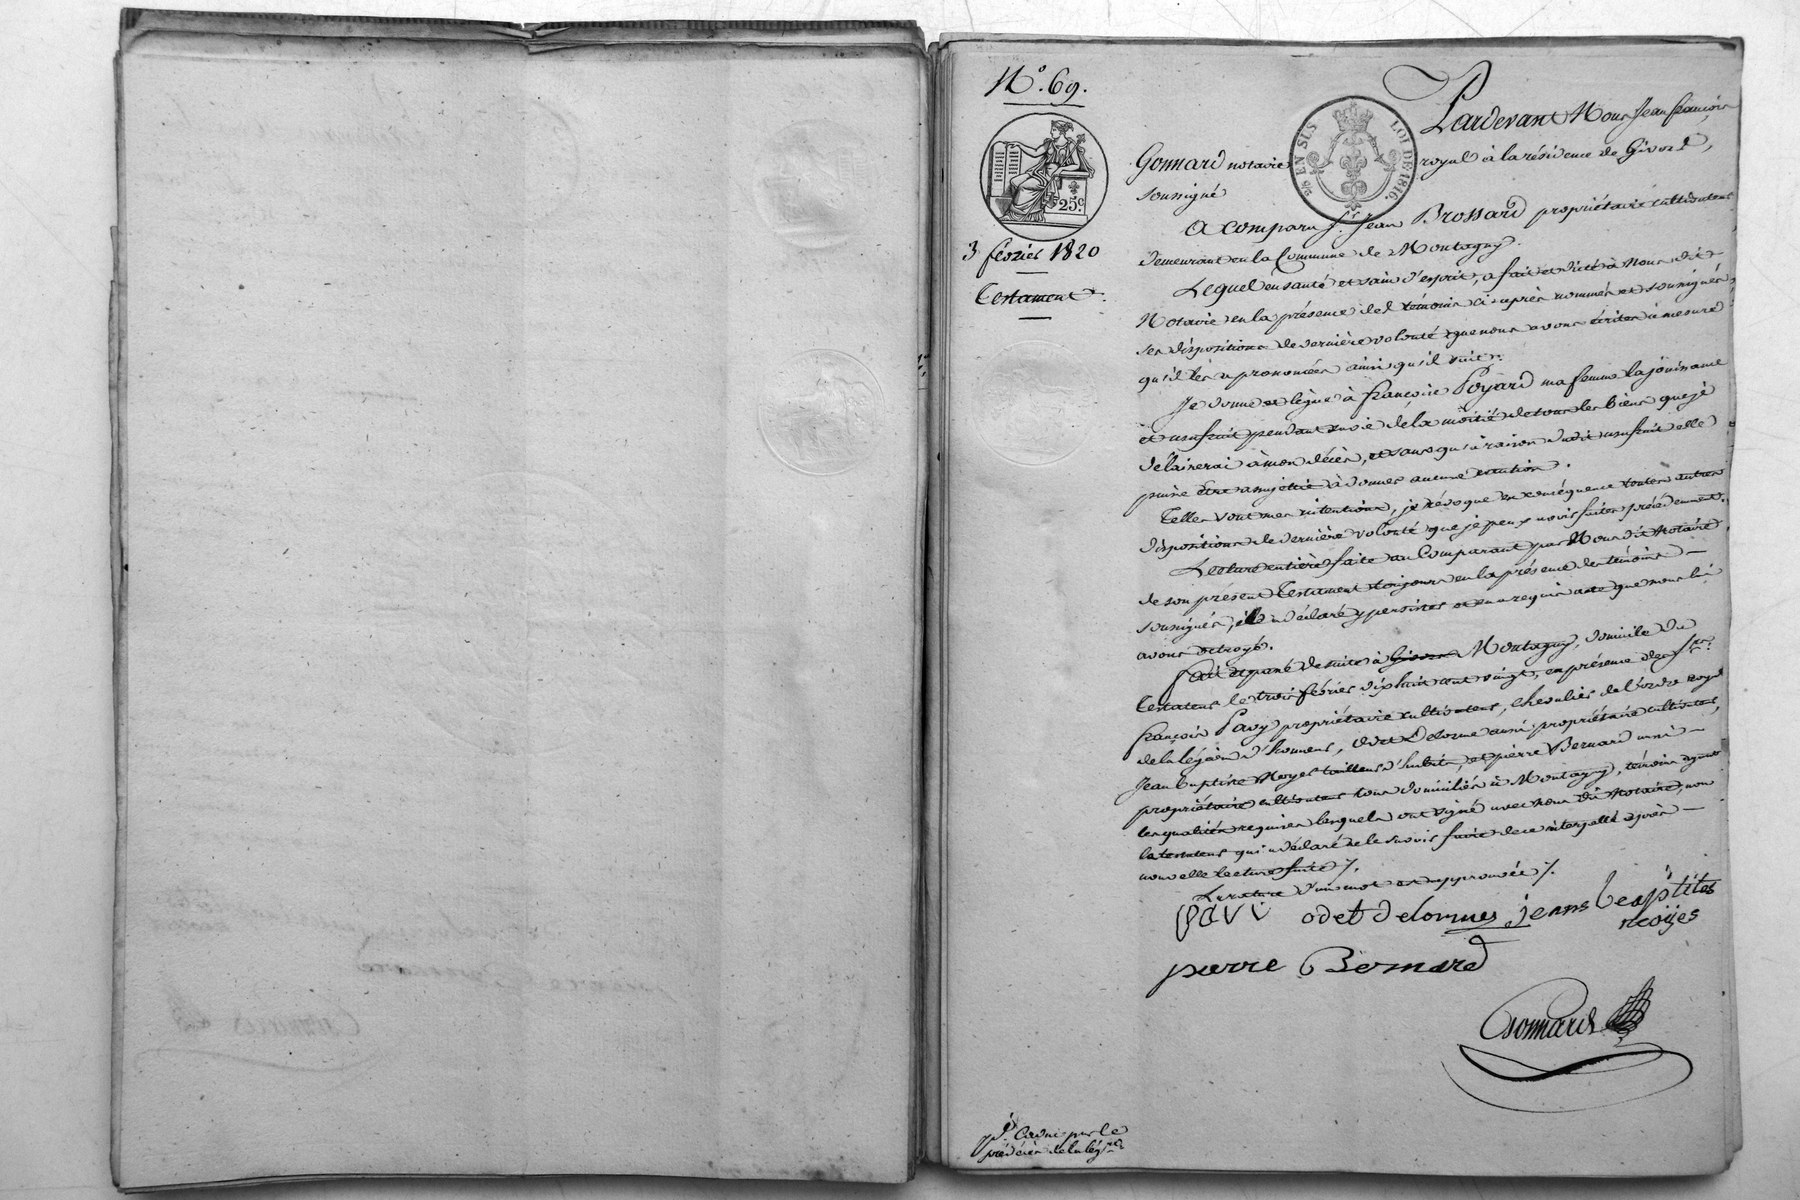 N.° 69.
25.c
3 février 1820
Testament.
25 EN SUS LOI DE 1816.
Pardevant Nous Jean françois
Gonnard notaire royal à la résidence de Givors,
soussigné
A comparu S.r Jean Brossard propriétaire cultivateur
demeurant en la Commune de Montagny.
Lequel en santé et sain d'esprit, a fait et dicté à Nous dit
Notaire en la présence des témoins ci-après nommés et soussignés
ses dispositions de dernière volonté que nous avons écrites à mesure
qu'il les a prononcées ainsi qu'il suit:
Je donne et lègue à françoise Poyard ma femme la jouissance
et usufruit pendant sa vie de la moitié de tous les biens que je
délaisserai à mon décès, et sans qu'à raison dudit usufruit elle
puisse être assujettie à donner aucune caution.
Telles sont mes intentions, je révoque en conséquence toutes autres
dispositions de dernière volonté que je peux avoir faites précédemment.
Lecture entière faite au Comparant par Nous dit Notaire
de son présent Testament toujours en la présence des témoins
soussignés, il a déclaré y persister et en a requis acte que nous lui
avons octroyé.
fait et passé de suite à Givors Montagny, domicile du
Testateur le trois février dix huit cent vingt, en présence de S.rs
françois Pavy propriétaire cultivateur, chevalier de l'ordre royal
de la légion d'honneur, Odet Delorme aussi propriétaire cultivateur,
Jean baptiste Noyer tailleur d'habits, et pierre Bernard aussi
propriétaire cultivateur tous domiciliés à Montagny, témoins ayant
les qualités requises lesquels ont signé avec nous dit Notaire, non
le testateur qui a déclaré ne le savoir faire de ce interpellé après
nouvelle lecture faite /.
La rature d'un mot est approuvée /.
pavi odet delormes jeans beaptites
noijes
pierre Bernard
Gonnard
décès de la